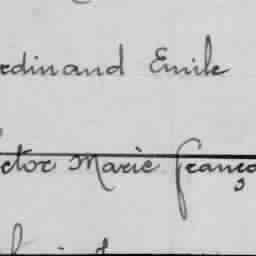 edinand Emile
ctor Marie franç